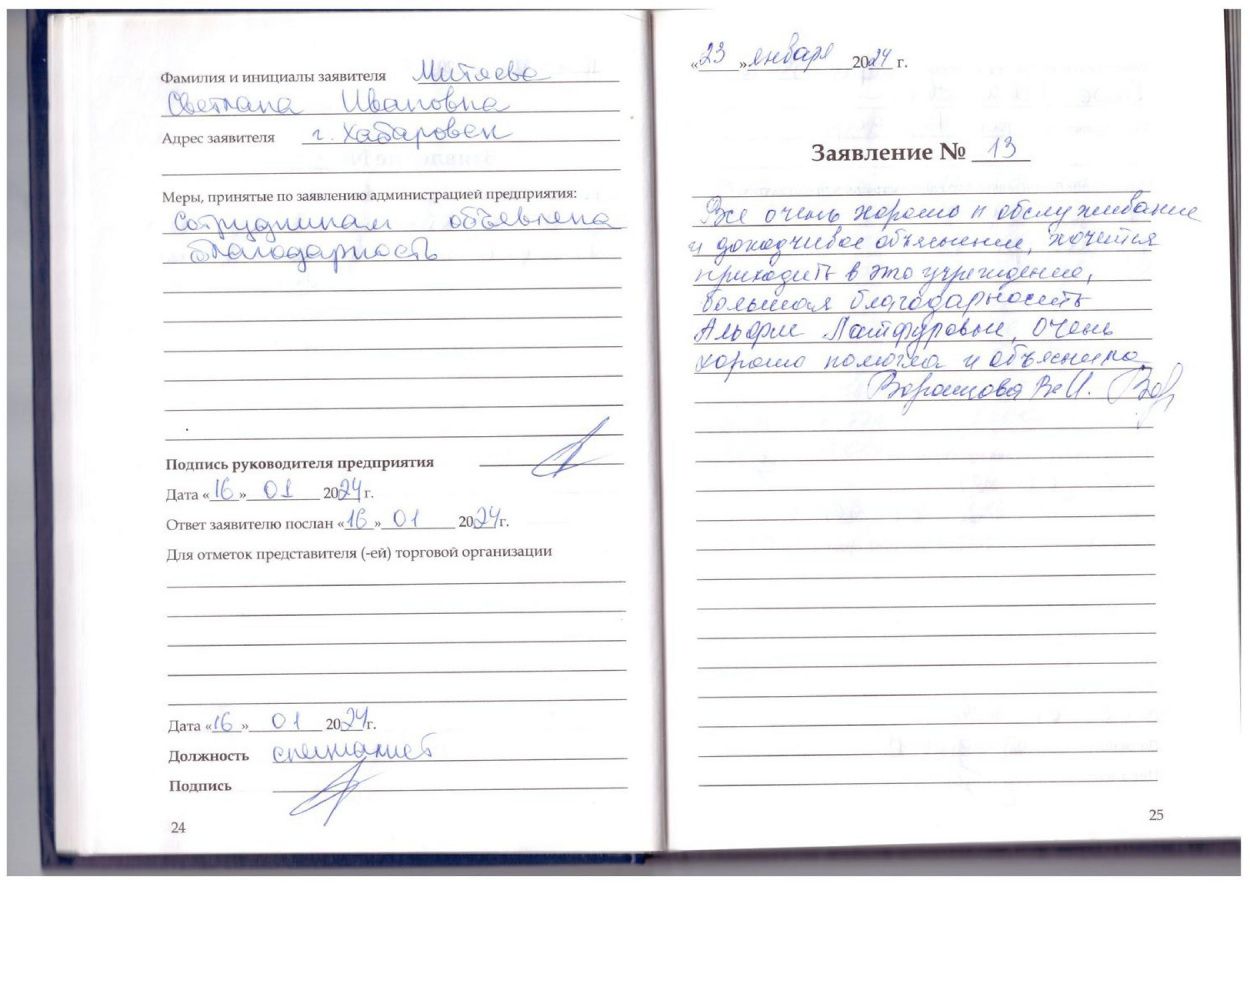 Фамилия и инициалы заявителя Митяева
Светлана Ивановна
Адрес заявителя г. Хабаровск
Меры, принятые по заявлению администрацией предприятия:
Сотрудникам объявлена
благодарность
Подпись руководителя предприятия
Дата «16» 01 2024 г.
Ответ заявителю послан «16» 01 2024 г.
Для отметок представителя (-ей) торговой организации
Дата «16» 01 2024 г.
Должность специалист
Подпись
24
«23» января 2024 г.
Заявление № 13
Все очень хорошо и обслуживание
и доходчивое объяснение, хочется
приходить в это учреждение,
большая благодарность
Латфуровне, очень
хорошо помогла и объяснила.
Воронцова В.И.
25